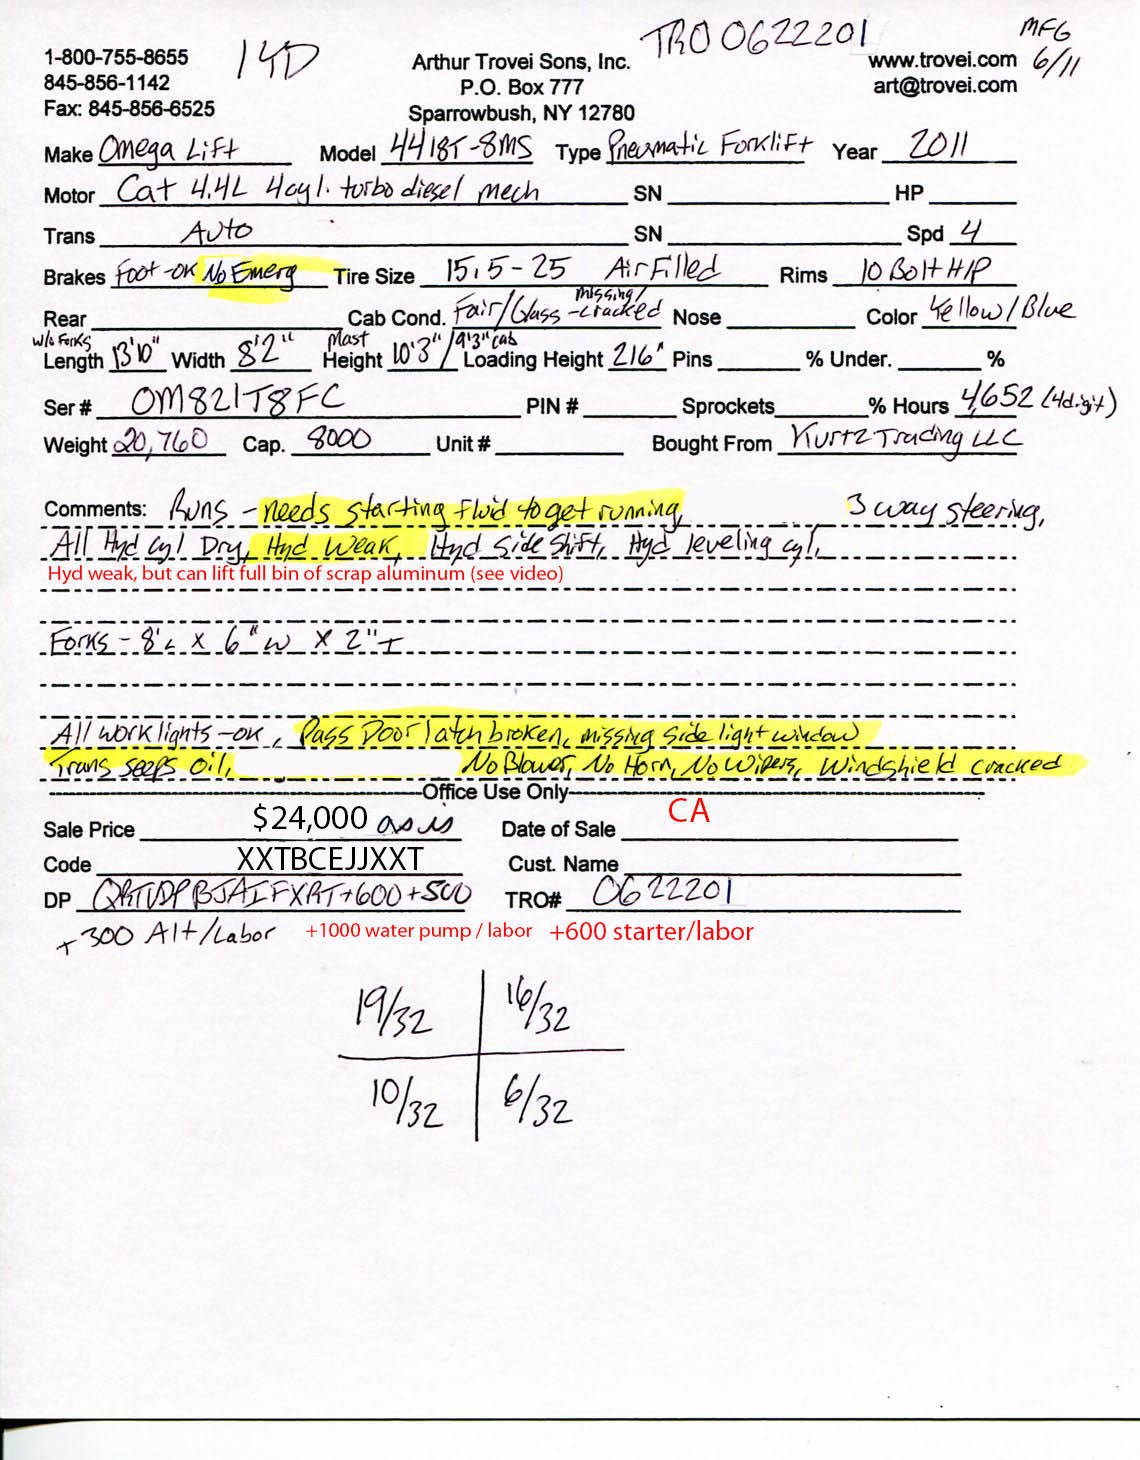 TRO 0622201
MFG
6/11
1-800-755-8655
845-856-1142
Fax: 845-856-6525
Arthur Trovei Sons, Inc.
P.O. Box 777
Sparrowbush, NY 12780
www.trovei.com
art@trovei.com
Make Omega Lift Model 4418T-8MS Type Pneumatic Forklift Year 2011
Motor Cat 4.4L 4cyl. turbo diesel mech SN HP
Trans Auto SN Spd 4
Brakes Foot-OK No Emerg Tire Size 15.5-25 Air Filled Rims 10 Bolt H/P
Rear Cab Cond. Fair/Glass-missing/cracked Nose Color Yellow/Blue
w/o Forks Length 13'10" Width 8'2" Mast Height 10'3"/9'3" cab Loading Height 216" Pins % Under. %
Ser # OM821T8FC PIN # Sprockets % Hours 4,652 (4digit)
Weight 20,760 Cap. 8000 Unit # Bought From Kurtz Trading LLC
Comments: Runs - needs starting fluid to get running, 3 way steering,
All Hyd Cyl Dry, Hyd Weak, Hyd Side Shift, Hyd leveling cyl,
Hyd weak, but can lift full bin of scrap aluminum (see video)
Forks - 8'L x 6"w x 2"T
All work lights - OK, Pass Door latch broken, missing side light window
Trans seeps oil, No Blower, No Horn, No Wipers, Windshield cracked
Office Use Only
Sale Price $24,000 as is Date of Sale CA
Code XXTBCEJJXXT Cust. Name
DP +600+500 TRO# 0622201
+300 Alt/Labor +1000 water pump / labor +600 starter/labor
19/32 16/32
10/32 6/32